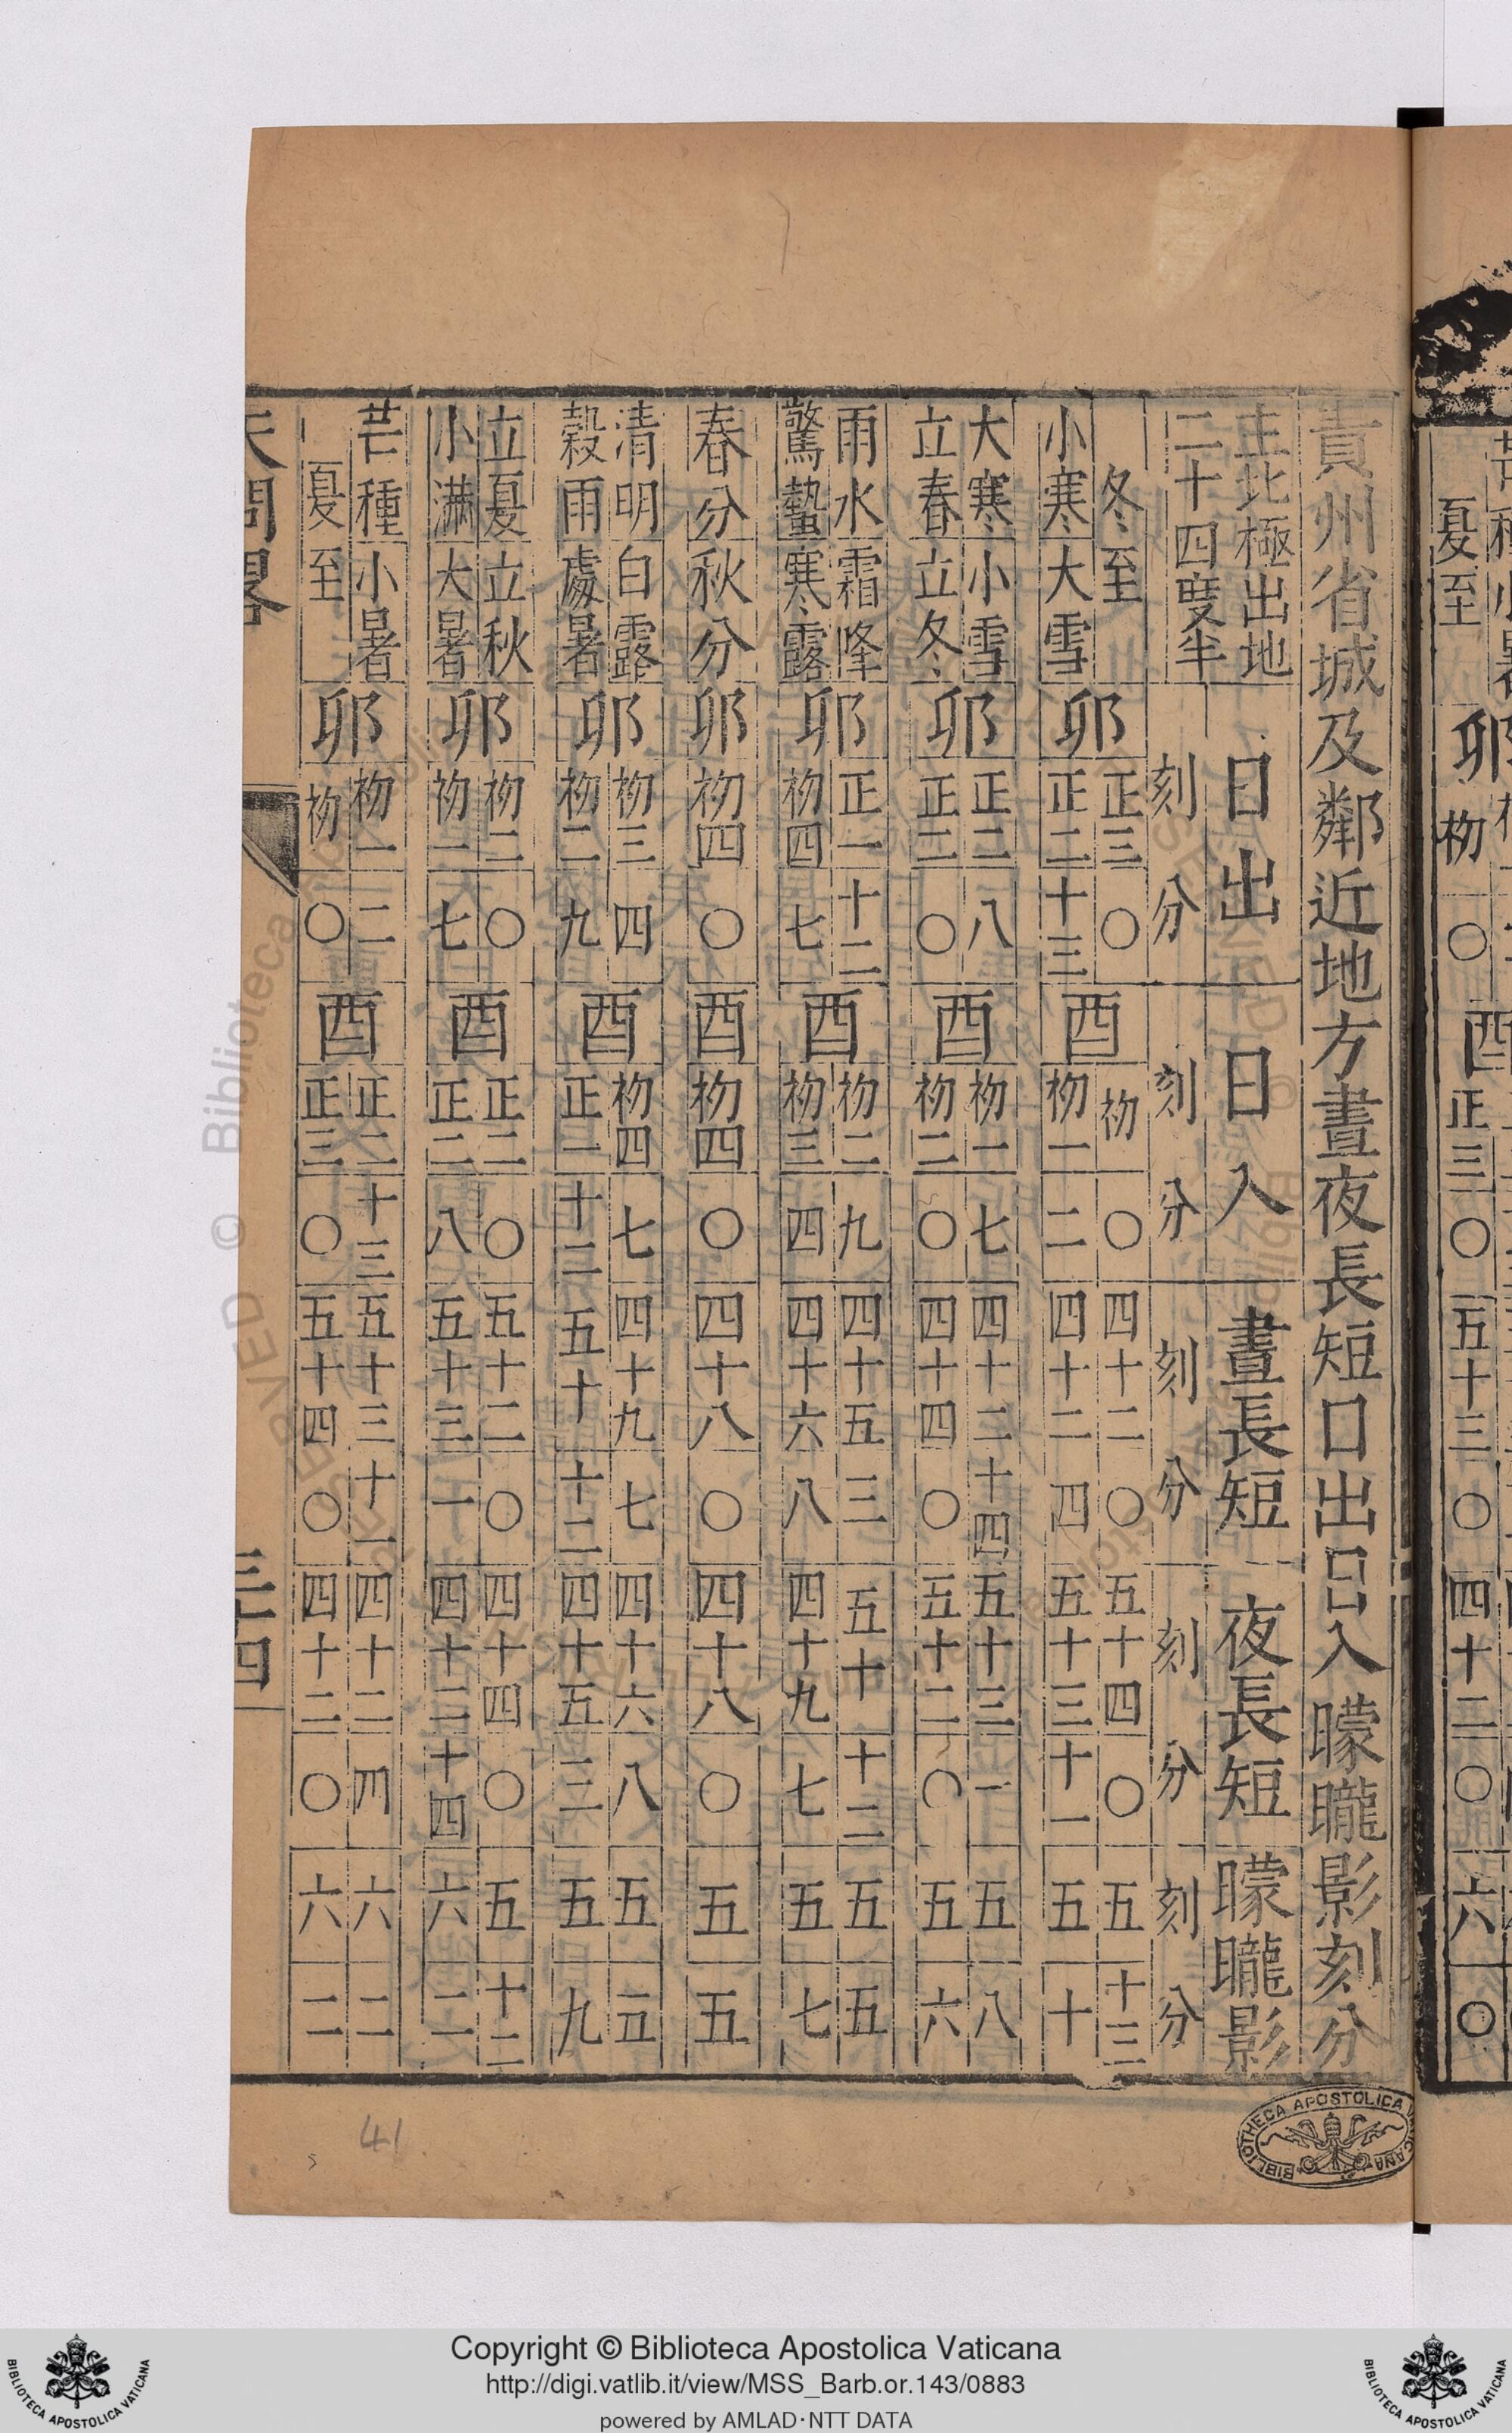 貴州省城及鄰近地方晝夜長短日出日入曚曨影刻分
北極出地
二十四度半
日出 日入 晝長短 夜長短 曚曨影
刻 分 刻 分 刻 分 刻 分 刻 分
冬至 卯 正三 〇 酉 初 〇 四十二 〇 五十四 〇 五 十三
小寒 大雪 正二 十三 初一 二 四十二 四 五十三 十一 五 十
大寒 小雪 卯 正二 八 酉 初一 七 四十二 十四 五十三 一 五 八
立春 立冬 正二 〇 初二 〇 四十四 〇 五十二 〇 五 六
雨水 霜降 卯 正一 十二 酉 初二 九 四十五 三 五十 十二 五 五
驚蟄 寒露 初四 七 初三 四 四十六 八 四十九 七 五 七
春分 秋分 卯 初四 〇 酉 初四 〇 四十八 〇 四十八 〇 五 五
清明 白露 卯 初三 四 酉 初四 七 四十九 七 四十六 八 五 五
穀雨 處暑 初二 九 正一 十二 五十 十二 四十五 三 五 九
立夏 立秋 卯 初二 〇 酉 正二 〇 五十二 〇 四十四 〇 五 十二
小滿 大暑 初一 七 正二 八 五十三 一 四十二 十四 六 二
芒種 小暑 卯 初一 二 酉 正二 十三 五十三 十一 四十二 四 六 二
夏至 初 〇 正三 〇 五十四 〇 四十二 〇 六 二
天問畧
三十四
41
夏至 卯 初 〇 酉 正三 〇 五十三 〇 四十二 〇 六 〇
BIBLIOTHECA APOSTOLICA VATICANA
Copyright © Biblioteca Apostolica Vaticana
http://digi.vatlib.it/view/MSS_Barb.or.143/0883
powered by AMLAD·NTT DATA
BIBLIOTECA APOSTOLICA VATICANA
BIBLIOTECA APOSTOLICA VATICANA